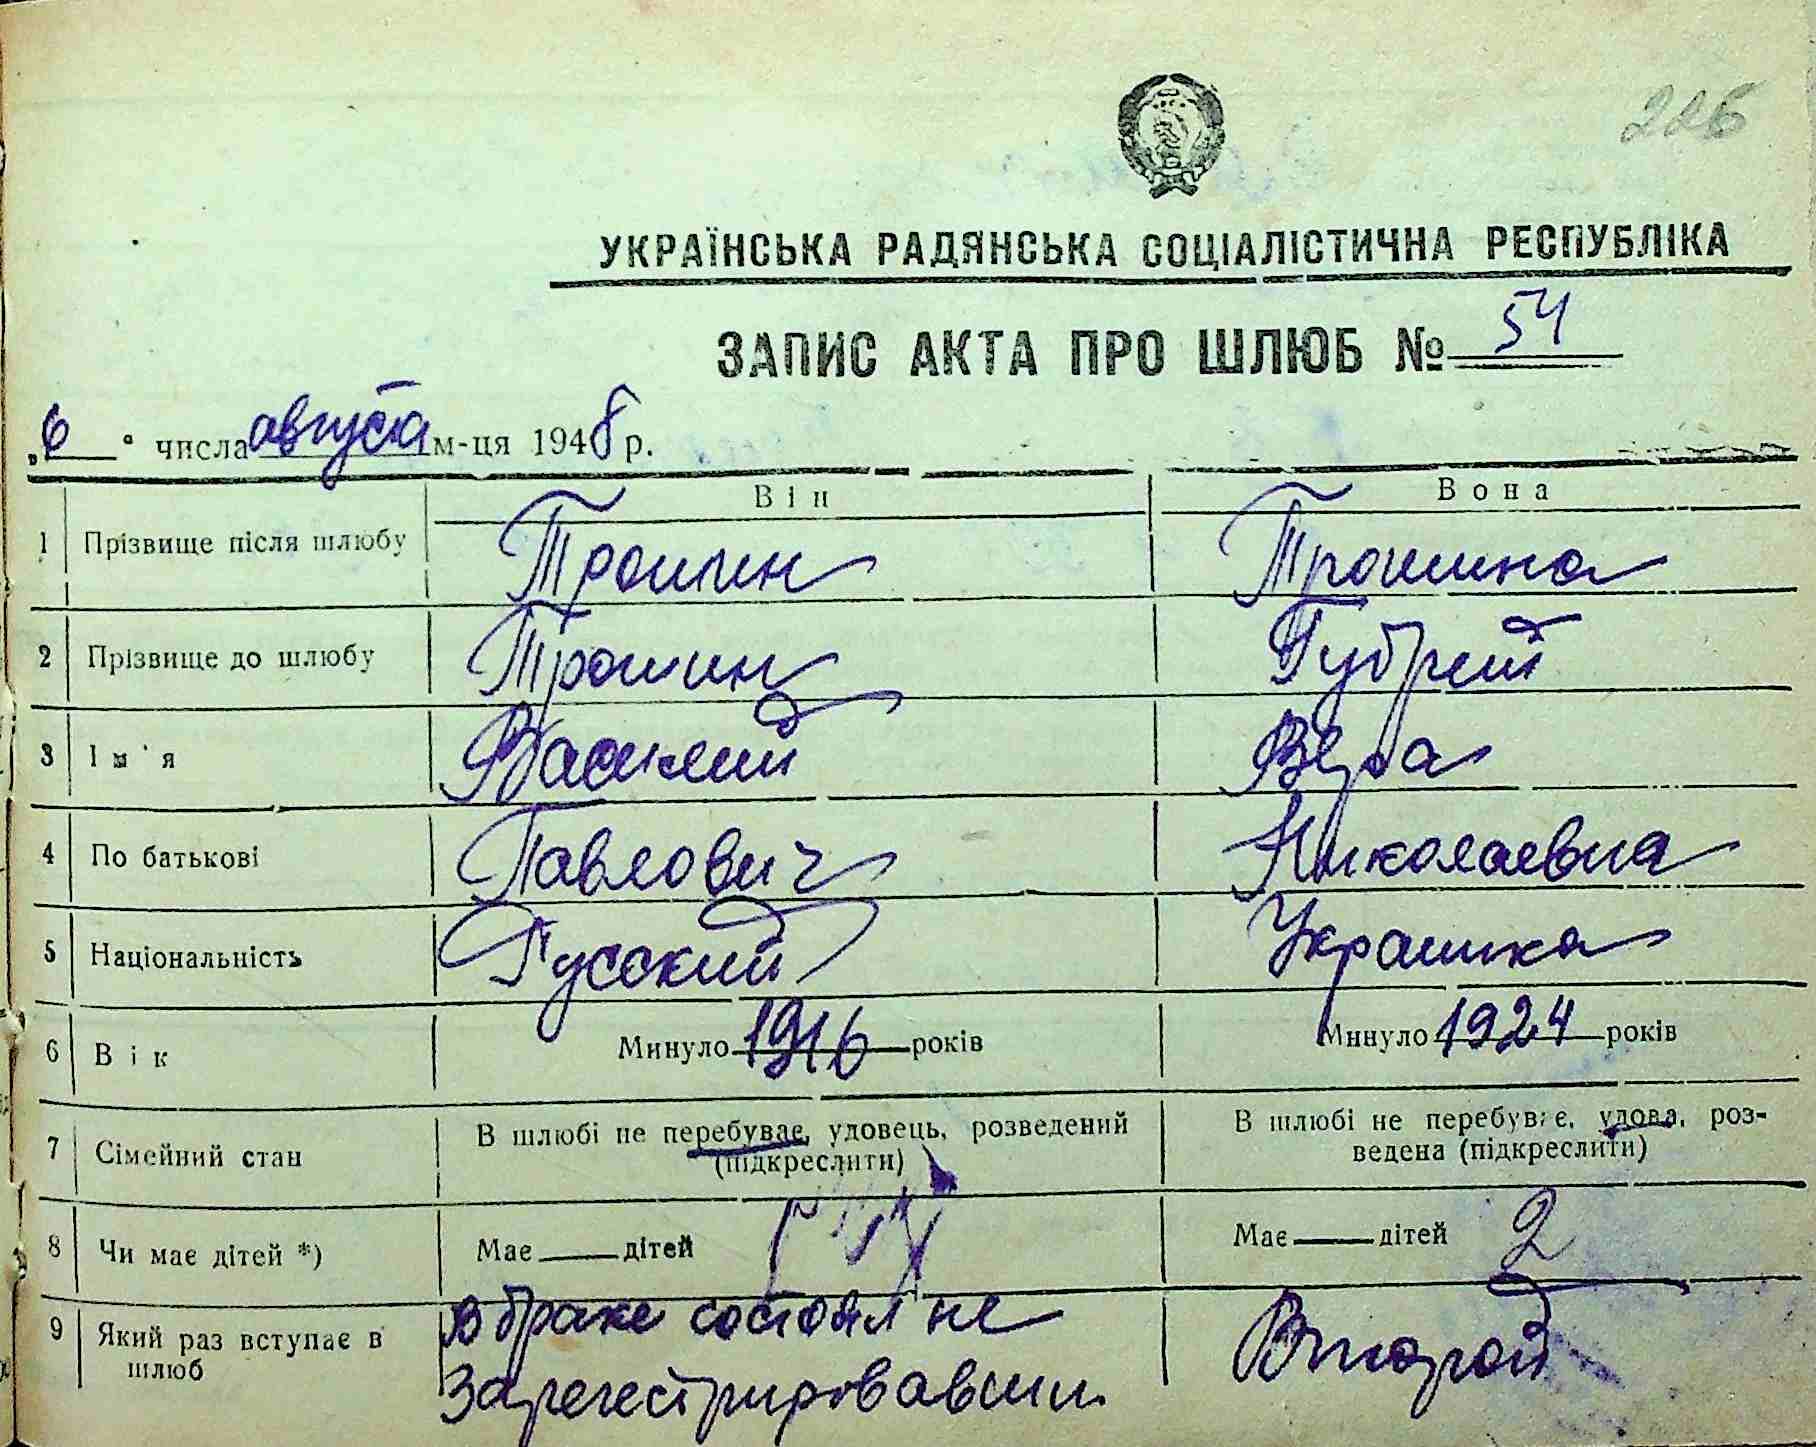 226
УКРАЇНСЬКА РАДЯНСЬКА СОЦІАЛІСТИЧНА РЕСПУБЛІКА
ЗАПИС АКТА ПРО ШЛЮБ № 54
„6" числа августа м-ця 1948 р.
Він Вона
1 Прізвище після шлюбу Трошин Трошина
2 Прізвище до шлюбу Трошин Губрій
3 Ім'я Василий Вера
4 По батькові Павлович Николаевна
5 Національність Русский Украинка
6 Вік Минуло 1916 років Минуло 1924 років
7 Сімейний стан В шлюбі не перебуває, удовець, розведений (підкреслити) В шлюбі не перебуває, удова, роз-
ведена (підкреслити)
8 Чи має дітей *) Має дітей Має дітей 2
9 Який раз вступає в шлюб в браке состоял не Второй
зарегестрировавши.